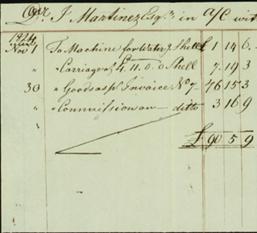 Dr. J Martinez Esqr. in a/c wit
1824
Nov 1 To Machine for Water & Shell £ 1 14 6
" " Carriage of 4.11.0.0 Shell 7 19 3
30 " Goods as pr Invoice No 7 76 15 3
" " Commission on ditto 3 16 9
£ 90 5 9